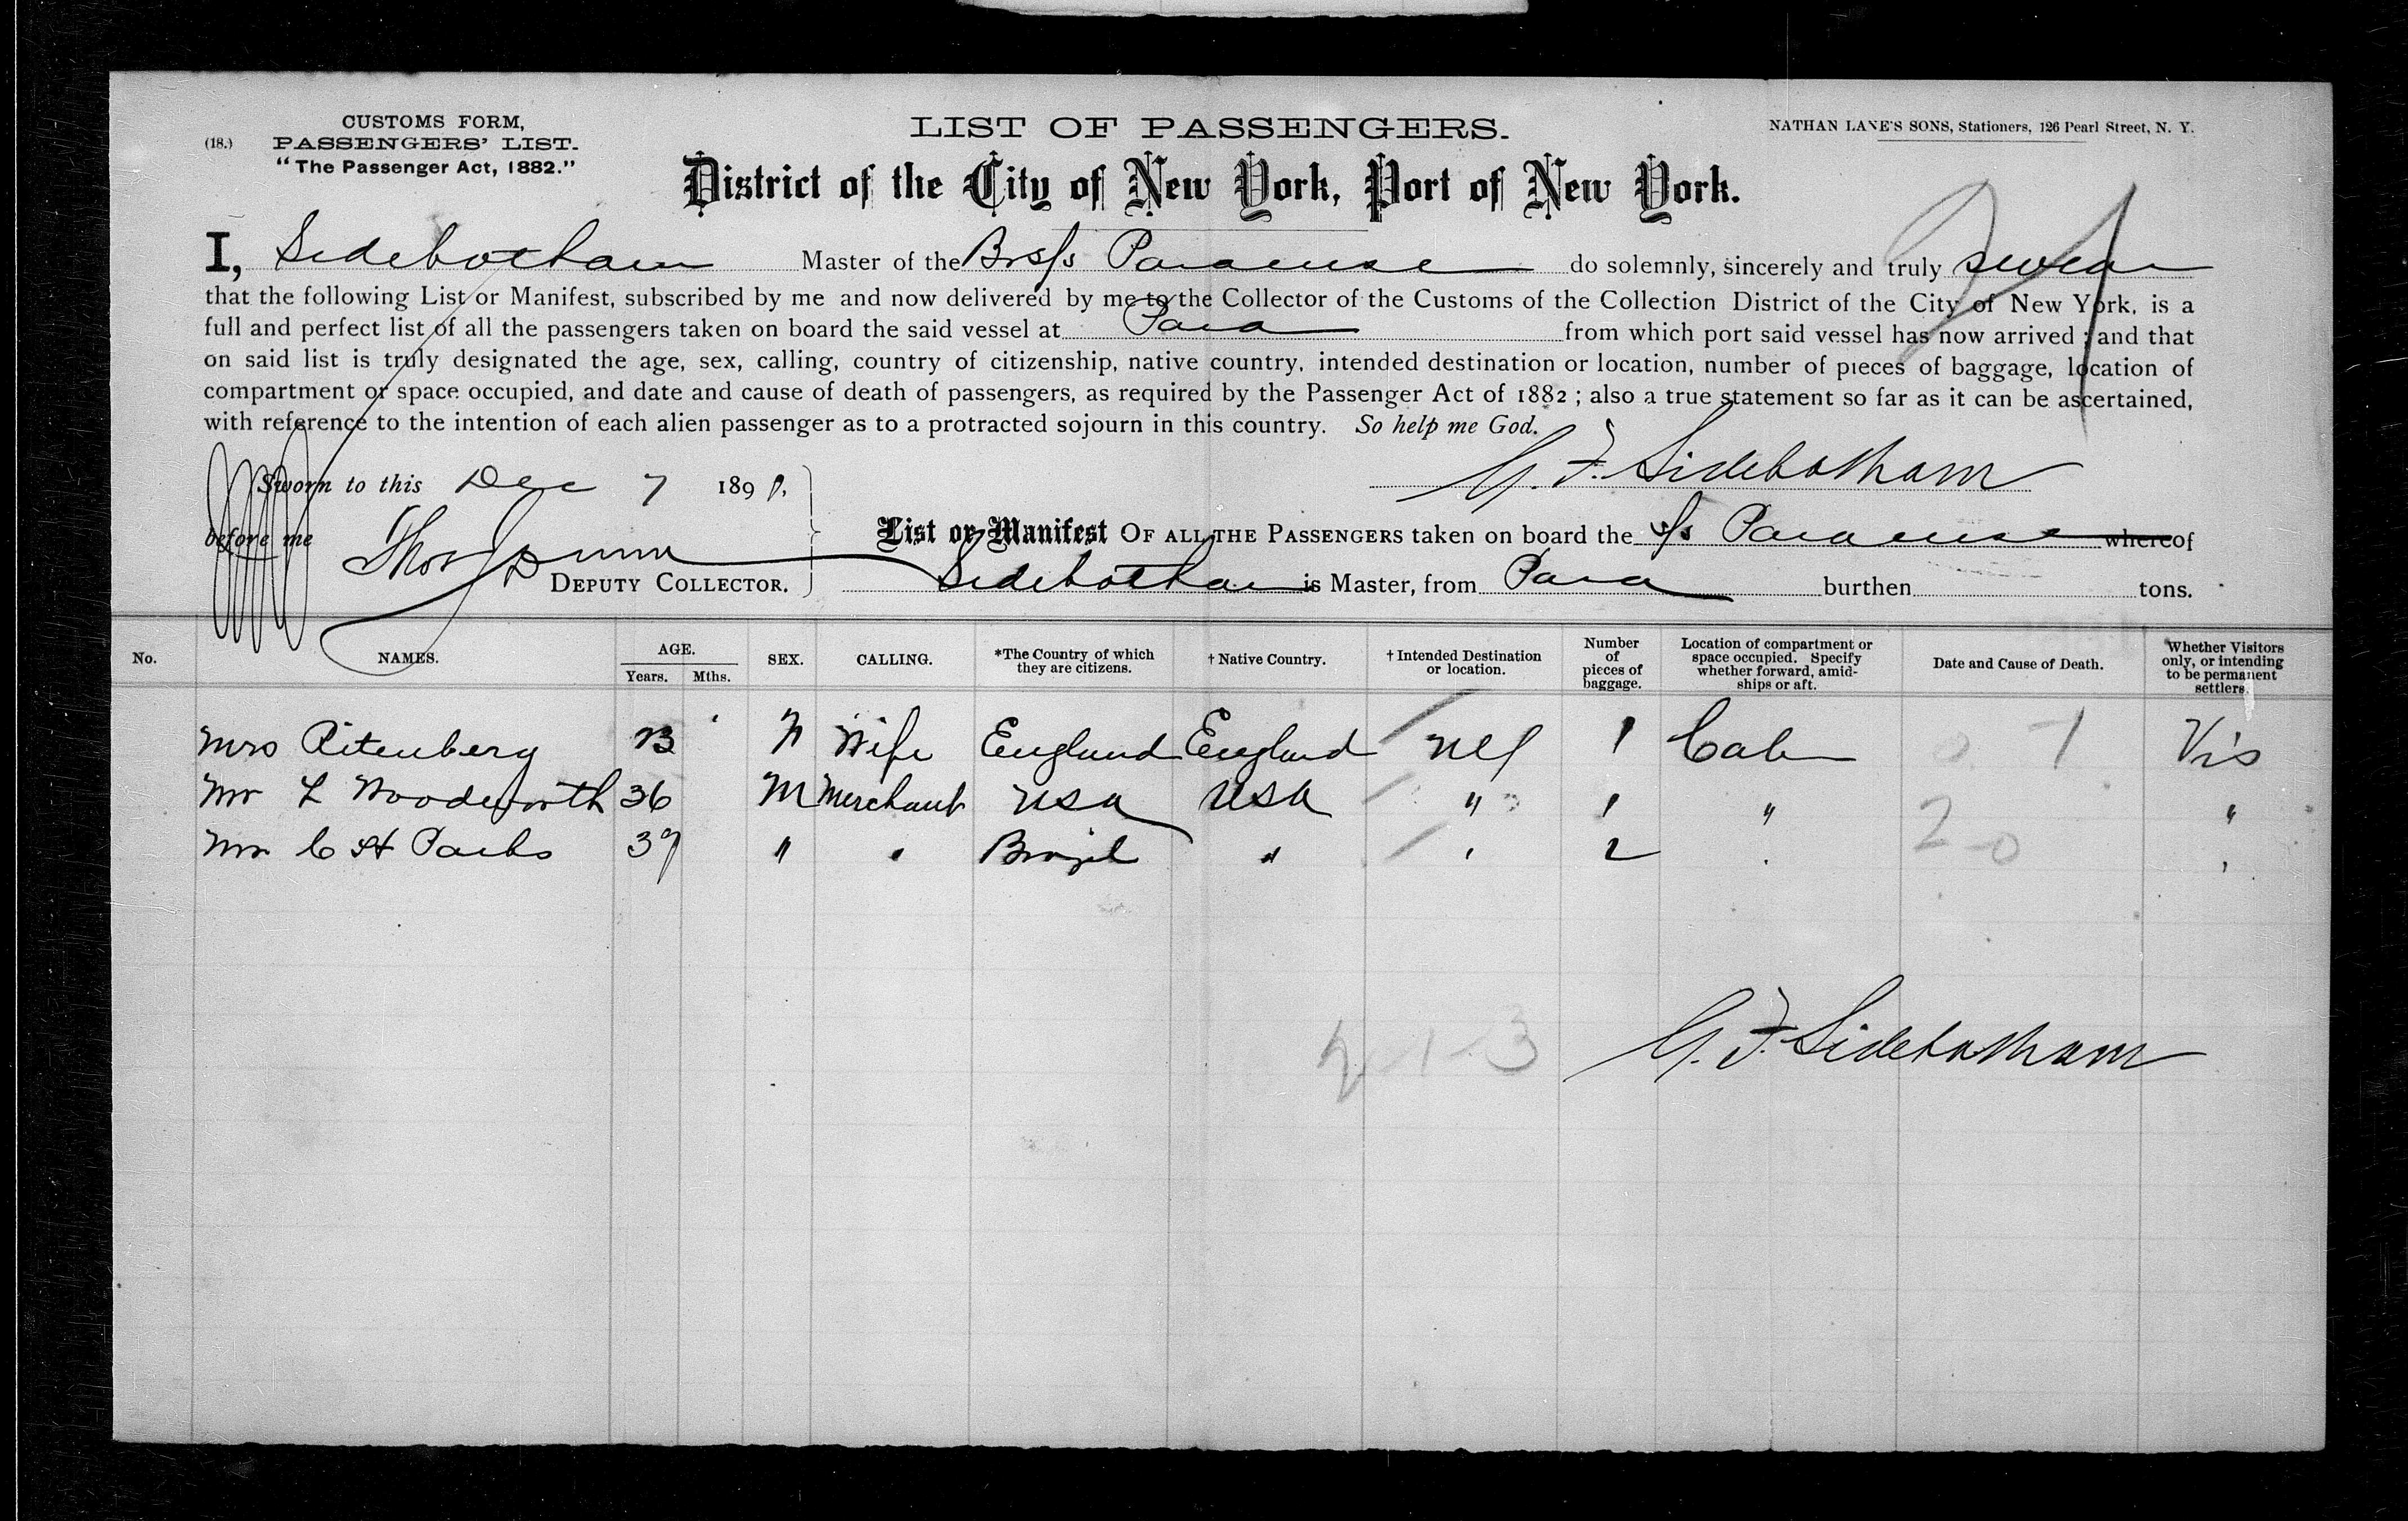 (18.)
CUSTOMS FORM,
PASSENGERS' LIST.
"The Passenger Act, 1882."
LIST OF PASSENGERS.
NATHAN LANE'S SONS, Stationers, 126 Pearl Street, N. Y.
District of the City of New York, Port of New York.
I, Sidebotham Master of the Br s/s Paraense do solemnly, sincerely and truly swear
that the following List or Manifest, subscribed by me and now delivered by me to the Collector of the Customs of the Collection District of the City of New York, is a
full and perfect list of all the passengers taken on board the said vessel at Para from which port said vessel has now arrived; and that
on said list is truly designated the age, sex, calling, country of citizenship, native country, intended destination or location, number of pieces of baggage, location of
compartment or space occupied, and date and cause of death of passengers, as required by the Passenger Act of 1882; also a true statement so far as it can be ascertained,
with reference to the intention of each alien passenger as to a protracted sojourn in this country. So help me God.
G. F. Sidebotham
Sworn to this Dec 7 189
before me Thos Dunn
DEPUTY COLLECTOR.
List or Manifest OF ALL THE PASSENGERS taken on board the s/s Paraense whereof
Sidebotham is Master, from Para burthen tons.
No. NAMES. AGE. Years. Mths. SEX. CALLING. *The Country of which they are citizens. † Native Country. † Intended Destination or location. Number of pieces of baggage. Location of compartment or space occupied. Specify whether forward, amidships or aft. Date and Cause of Death. Whether Visitors only, or intending to be permanent settlers.
Mrs Ritenberg Wife England England NY 1 Cab 0 1 Vis
Mr L Woodworth 36 M Merchant USA USA " 1 " "
Mr C H Parks 39 " " Brazil " " 2 " 2 0 "
2 1 3
G. F. Sidebotham